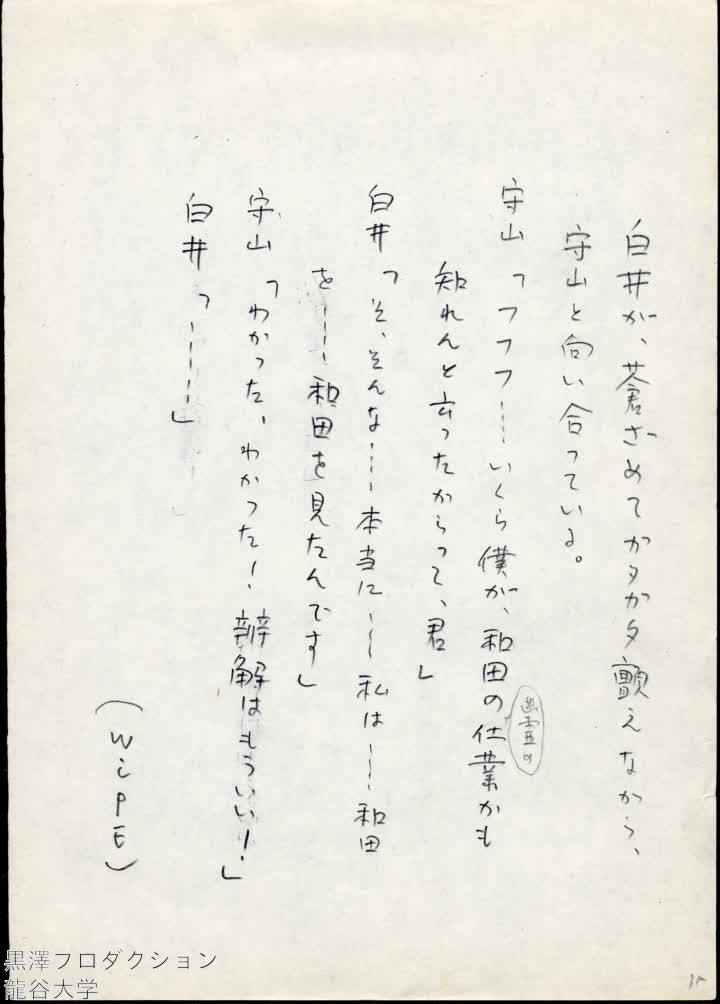 白井が、蒼ざめてガタガタ顫えながら、
守山と向い合っている。
守山「フフフ……いくら僕が、和田の幽霊の仕業かも
知れんと云ったからって、君」
白井「そ、そんな……本当に……私は……和田
を……和田を見たんです」
守山「わかった、わかった！辨解はもういい！」
白井「………」
(WiPE)
黒澤プロダクション
龍谷大学